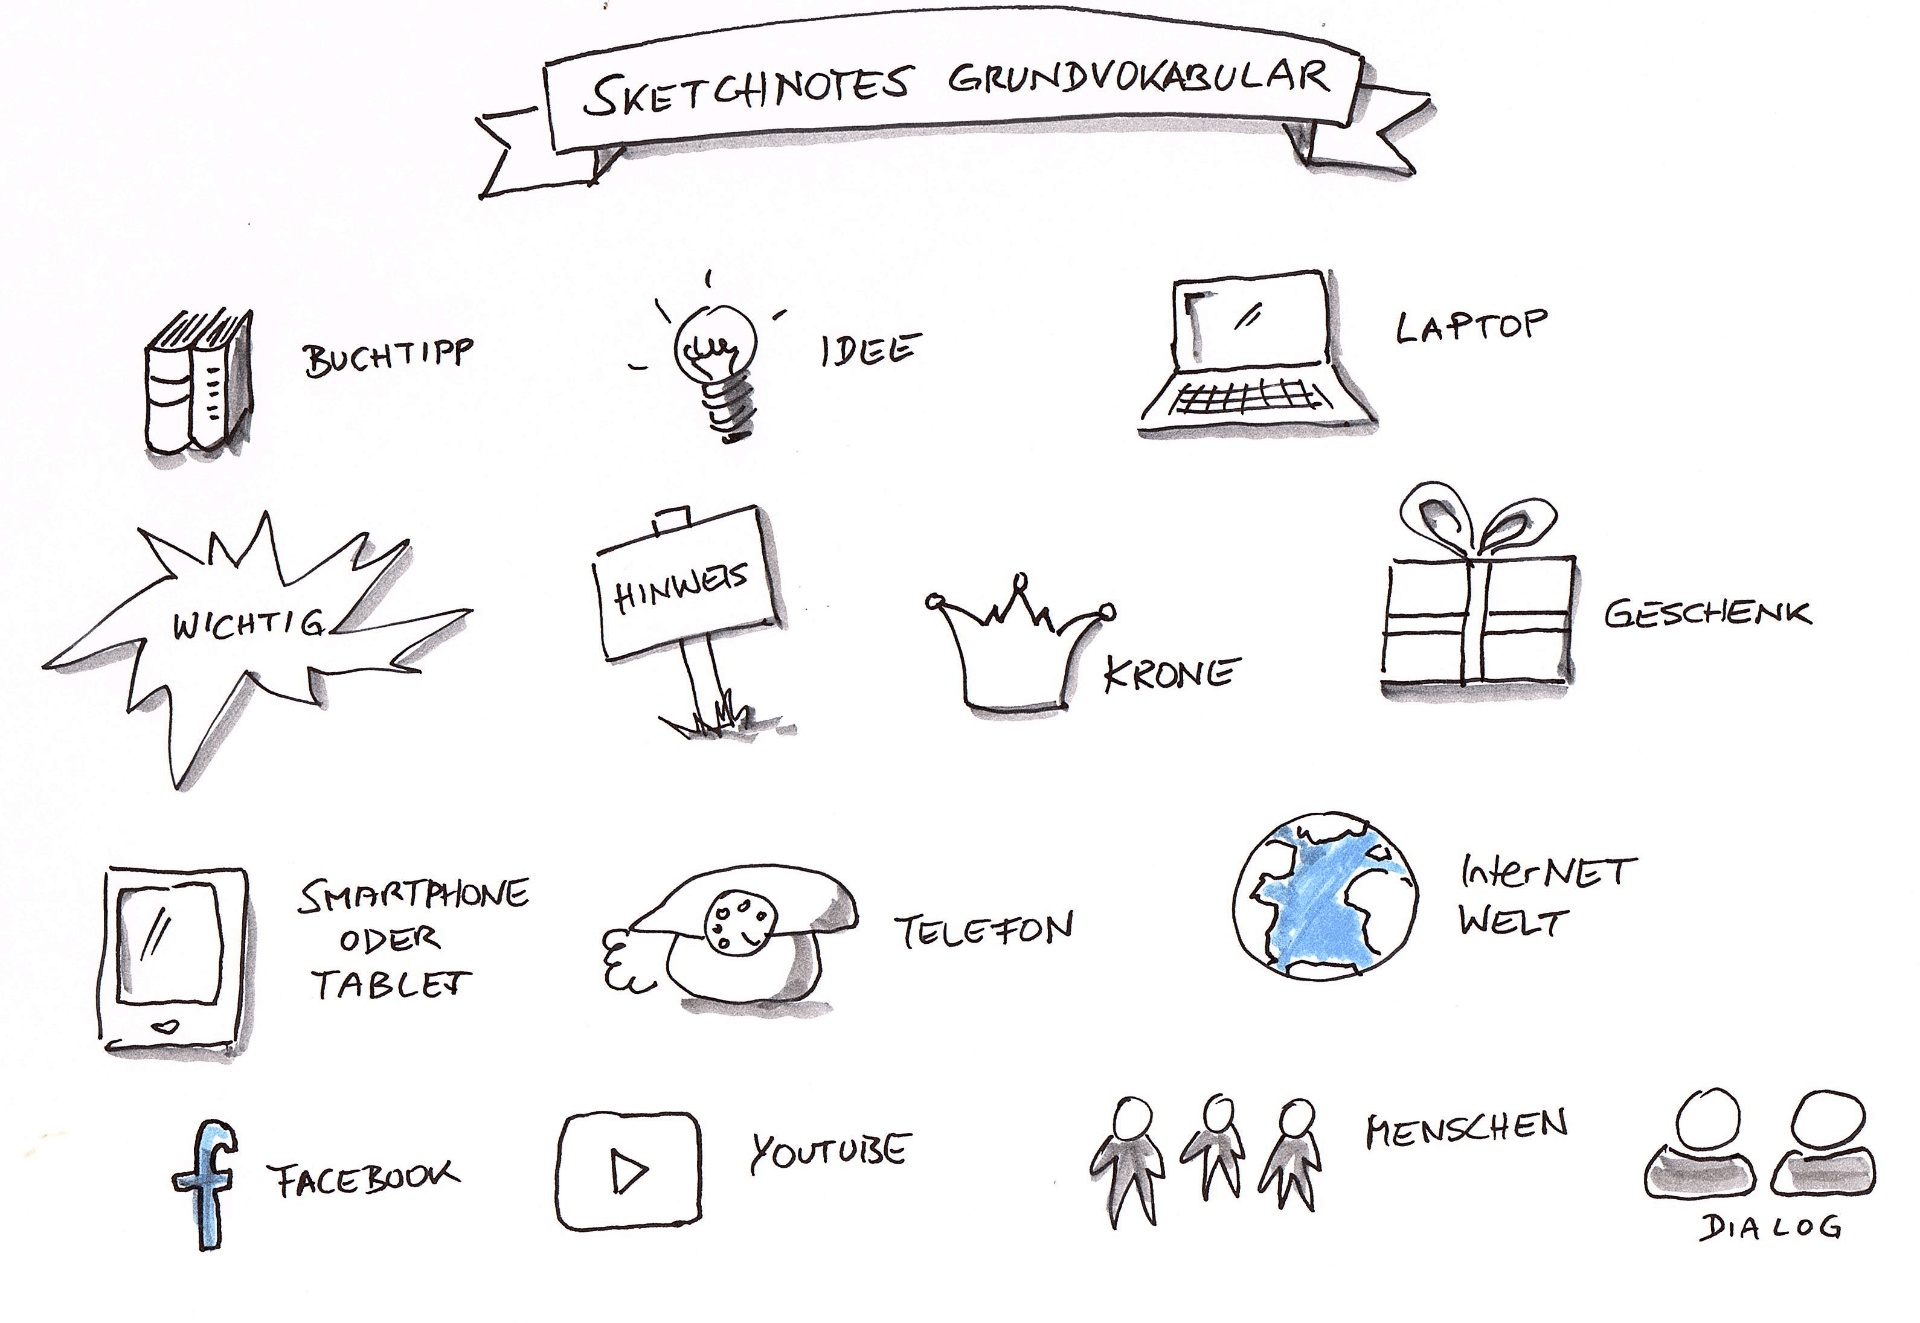 SKETCHNOTES GRUNDVOKABULAR
BUCHTIPP
IDEE
LAPTOP
WICHTIG
HINWEIS
KRONE
GESCHENK
SMARTPHONE
ODER
TABLET
TELEFON
InterNET
WELT
FACEBOOK
YOUTUBE
MENSCHEN
DIALOG